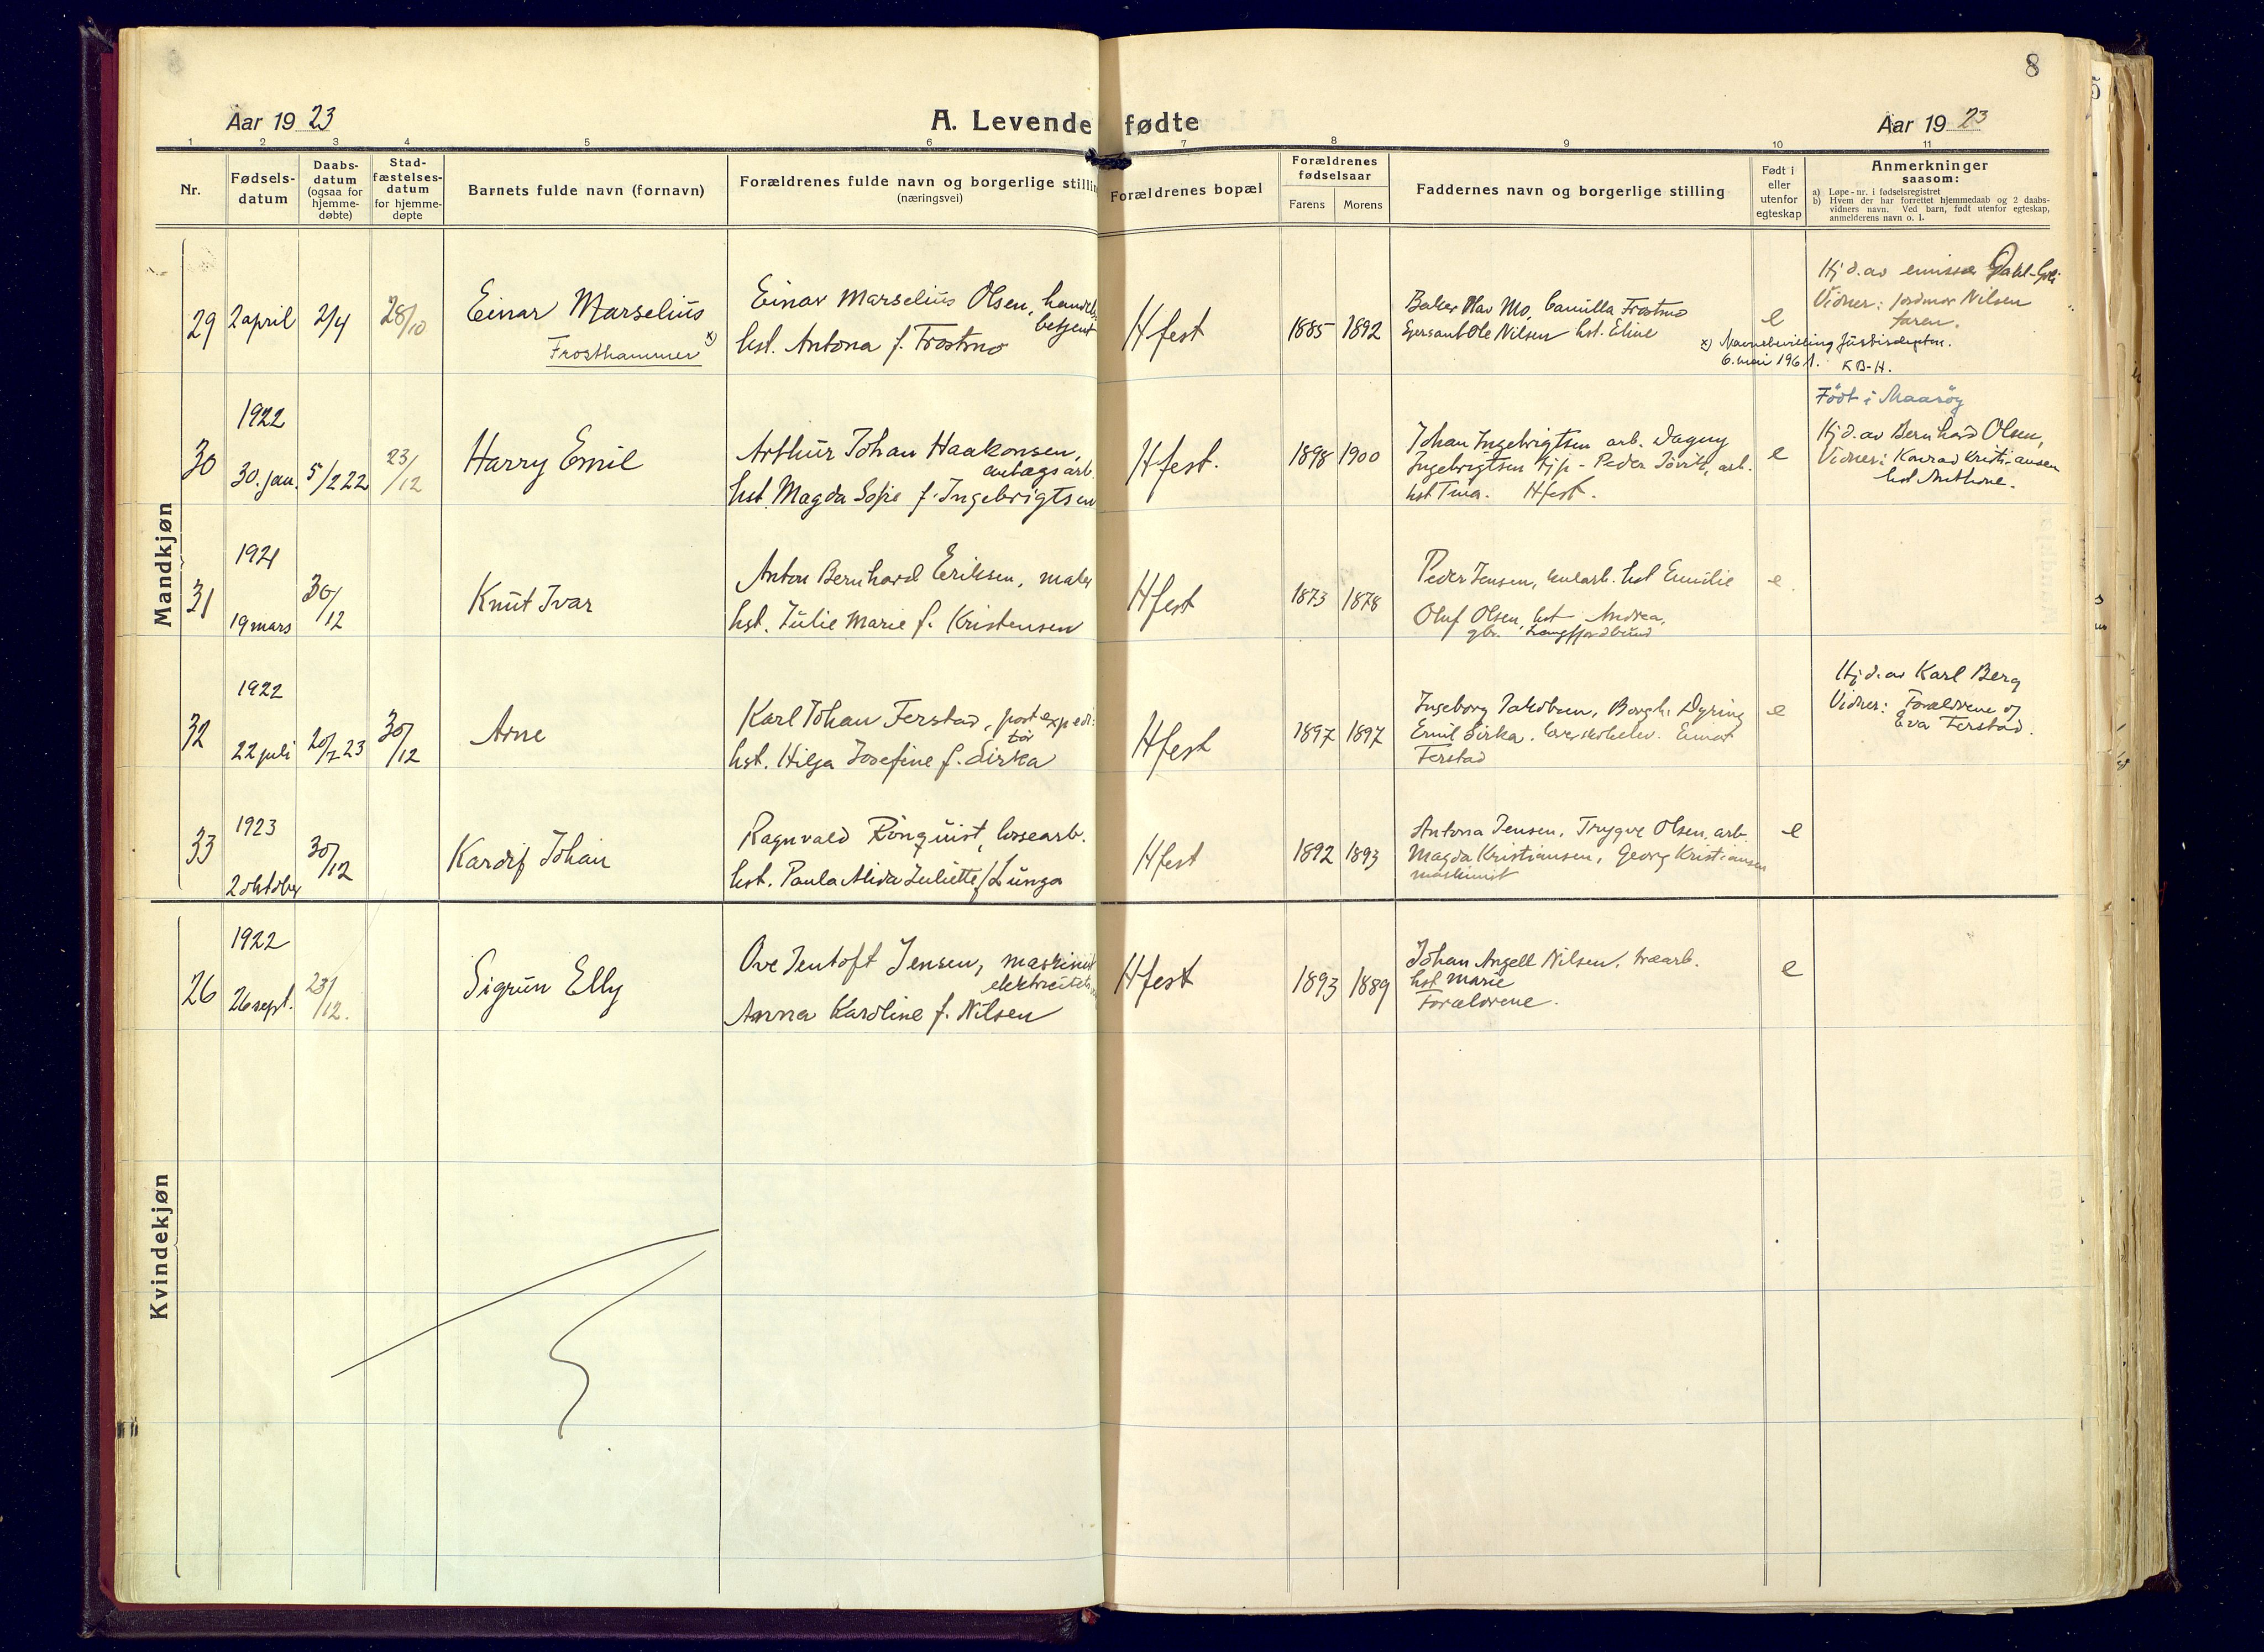 8
Aar 19 23
A. Levende fødte
Aar 19 23
1 2 3 4 5 6 7 8 9 10 11
Nr.
Fødsels-
datum
Daabs-
datum
(ogsaa for
hjemme-
døbte)
Stad-
fæstelses-
datum
for hjemme-
døpte
Barnets fulde navn (fornavn)
Forældrenes fulde navn og borgerlige stillin
(næringsvei)
Forældrenes bopæl
Forældrenes
fødselsaar
Farens Morens
Faddernes navn og borgerlige stilling
Født i
eller
utenfor
egteskap
Anmerkninger
saasom:
a) Løpe-nr. i fødselsregistret
b) Hvem der har forrettet hjemmedaab og 2 daabs-
vidners navn. Ved barn, født utenfor egteskap,
anmelderens navn o. l.
Mandkjøn
29 2 april 2/4 28/10
Einar Marselius
Frosthammer x)
Einar Marselius Olsen, handels
betjent
hst. Antona f. Trostmo
Hfest
1885 1892
Baker Olav Mo, Camilla Trostmo
Ole Nilsen hst. Eline
e
Hj d. av emissær Dahl-
Vidner: jordmor Nilsen
faren.
x) Navnebevilling Justisdepten.
6. mai 1961. KB-H.
30
1922
30. jan. 5/2 22 23/12
Harry Emil
Arthur Johan Haakonsen,
anlægsarb.
hst. Magda Sofie f. Ingebrigtsen
Hfest.
1898 1900
Johan Ingebrigtsen arb. Dagny
Ingebrigtsen Tjp - Peder arb.
hst Hfest.
e
Født i Maasøy
Hj d. av Bernhard Olsen,
Vidner: Konrad Kristiansen
hst
31
1921
19 mars 30/12
Knut Ivar
Anton Bernhard Eriksen, maler
hst. Julie Marie f. Kristensen
Hfest
1873 1878
Peder Jensen, hst Emilie
Oluf Olsen, hst Andrea,
gbr. Langfjordbund
e.
32
1922
22 juli 20/7 23 30/12
Arne
Karl Johan Ferstad, postexpedi-
tør
hst. Hilja Josefine f. Sirka
Hfest
1897 1897
Ingeborg Jakobsen, Borgh. Dyring
Emil Sirka. Einar
Ferstad
e
Hj d. av Karl Berg
Vidner: Forældrene og
Eva Ferstad.
33
1923
2 oktober 30/12
Kardif Johan
Ragnvald Rönquist, lossearb.
hst. Paula Alida Juliette f Lunga
Hfest
1892 1893
Antona Jensen, Trygve Olsen, arb.
Magda Kristiansen, Georg Kristiansen
maskinist
e
Kvindekjøn
26
1922
26 sept. 23/12.
Sigrun Elly
Ove Jentoft Jensen, maskinist
Anna Karoline f. Nilsen
Hfest
1893 1889
Johan Angell Nilsen, træarb.
hst Marie
Forældrene.
e